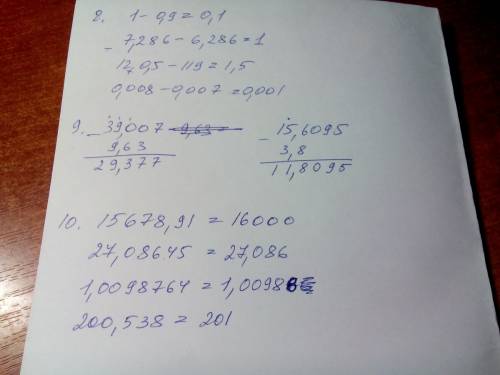 8. 1 - 0,9 = 0,1
- 7,286 - 6,286 = 1
120,5 - 119 = 1,5
0,008 - 0,007 = 0,001
9. - 39,007 9,63 = - 15,6095
9,63 3,8
29,377 11,8095
10. 15678,91 = 16000
27,08645 = 27,086
1,0098764 = 1,0098
200,538 = 201